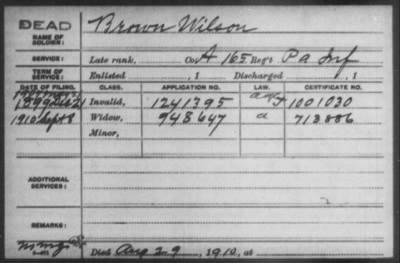 DEAD
NAME OF SOLDIER: Brown Wilson
SERVICE: Late rank, Co. A 165 Reg't Pa Inf
TERM OF SERVICE: Enlisted , 1 Discharged , 1
DATE OF FILING. CLASS. APPLICATION NO. LAW. CERTIFICATE NO.
1899 21 Invalid, 1241395 1001030
1910 Sept 8 Widow, 948647 a 713886
Minor,
ADDITIONAL SERVICES:
REMARKS:
Died Aug 29, 1910, at